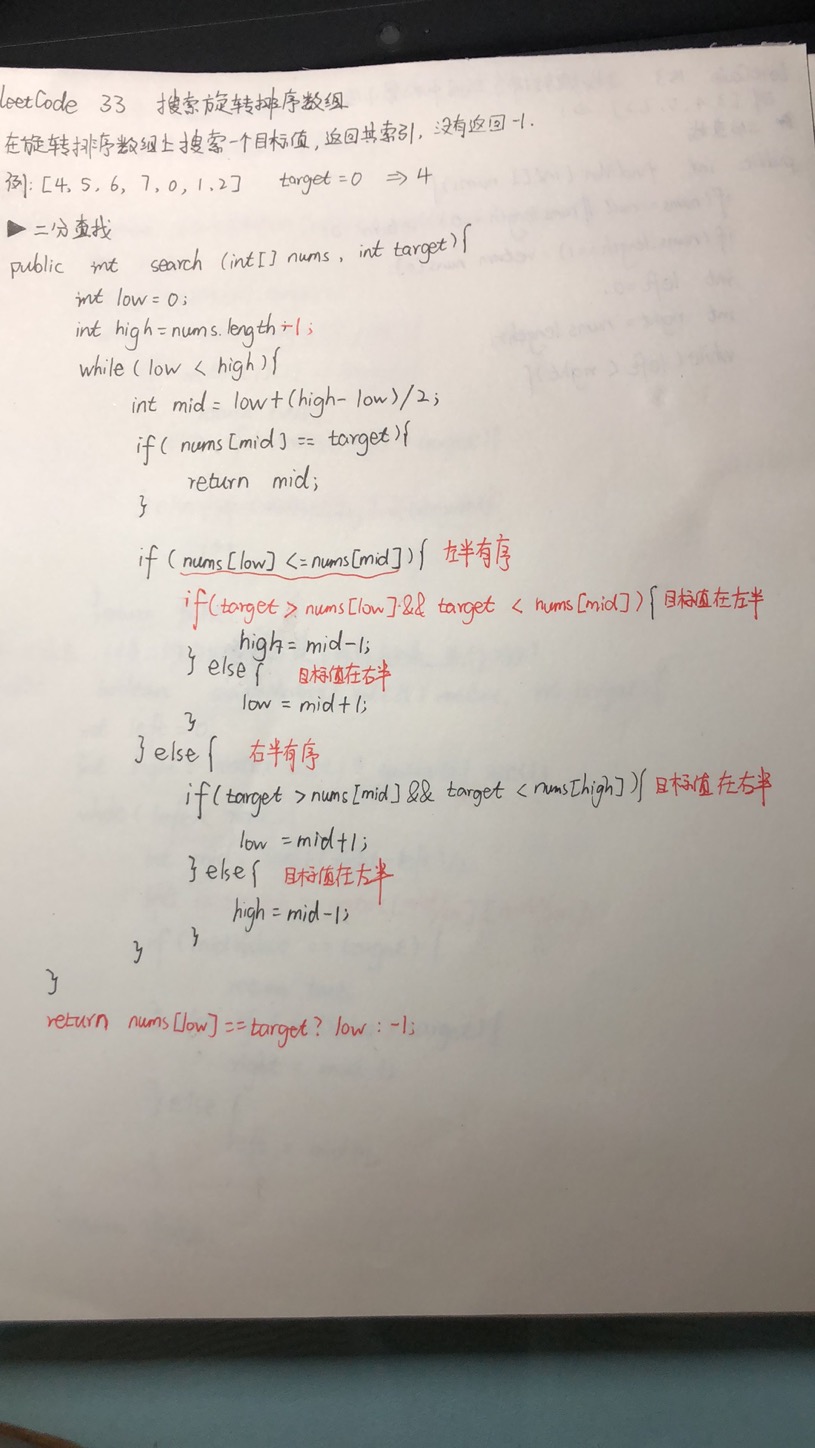 LeetCode 33 搜索旋转排序数组
在旋转排序数组上搜索一个目标值,返回其索引,没有返回-1.
例:[4, 5, 6, 7, 0, 1, 2] target=0 ⇒ 4
▶ 二分查找
public int search (int[] nums, int target){
int low = 0;
int high = nums.length-1;
while (low < high){
int mid = low+(high-low)/2;
if( nums[mid] == target){
return mid;
}
if (nums[low] <= nums[mid]){ 左半有序
if(target > nums[low] && target < nums[mid]){ 目标值在左半
high = mid-1;
} else { 目标值在右半
low = mid+1;
}
} else { 右半有序
if(target > nums[mid] && target < nums[high]){ 目标值在右半
low = mid+1;
} else { 目标值在左半
high = mid-1;
}
}
}
return nums[low] == target? low : -1;